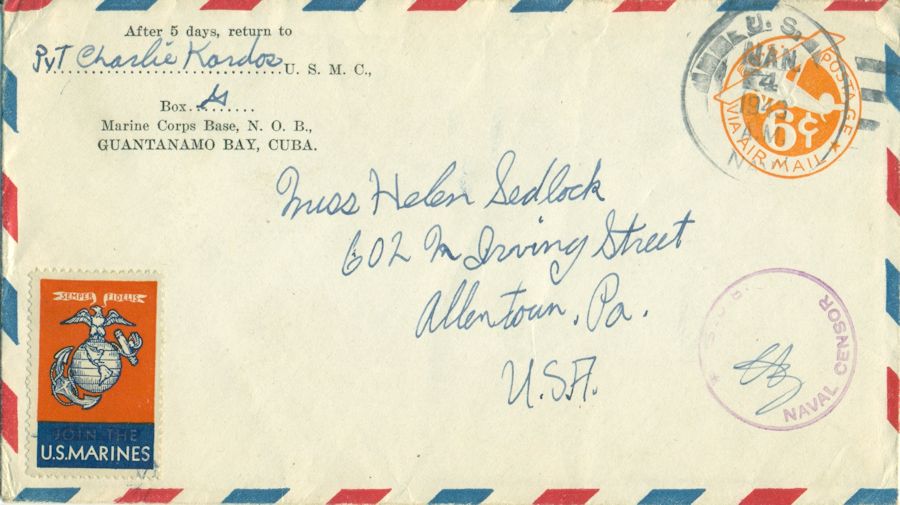 After 5 days, return to
Pvt Charlie Kardos U. S. M. C.,
Box
Marine Corps Base, N. O. B.,
GUANTANAMO BAY, CUBA.
U. S.
JAN
4
A.M.
POSTAGE
6¢
VIA AIR MAIL
Miss Helen Sedlock
602 N Irving Street
Allentown, Pa.
U.S.A.
SEMPER FIDELIS
JOIN THE
U.S. MARINES
NAVAL CENSOR